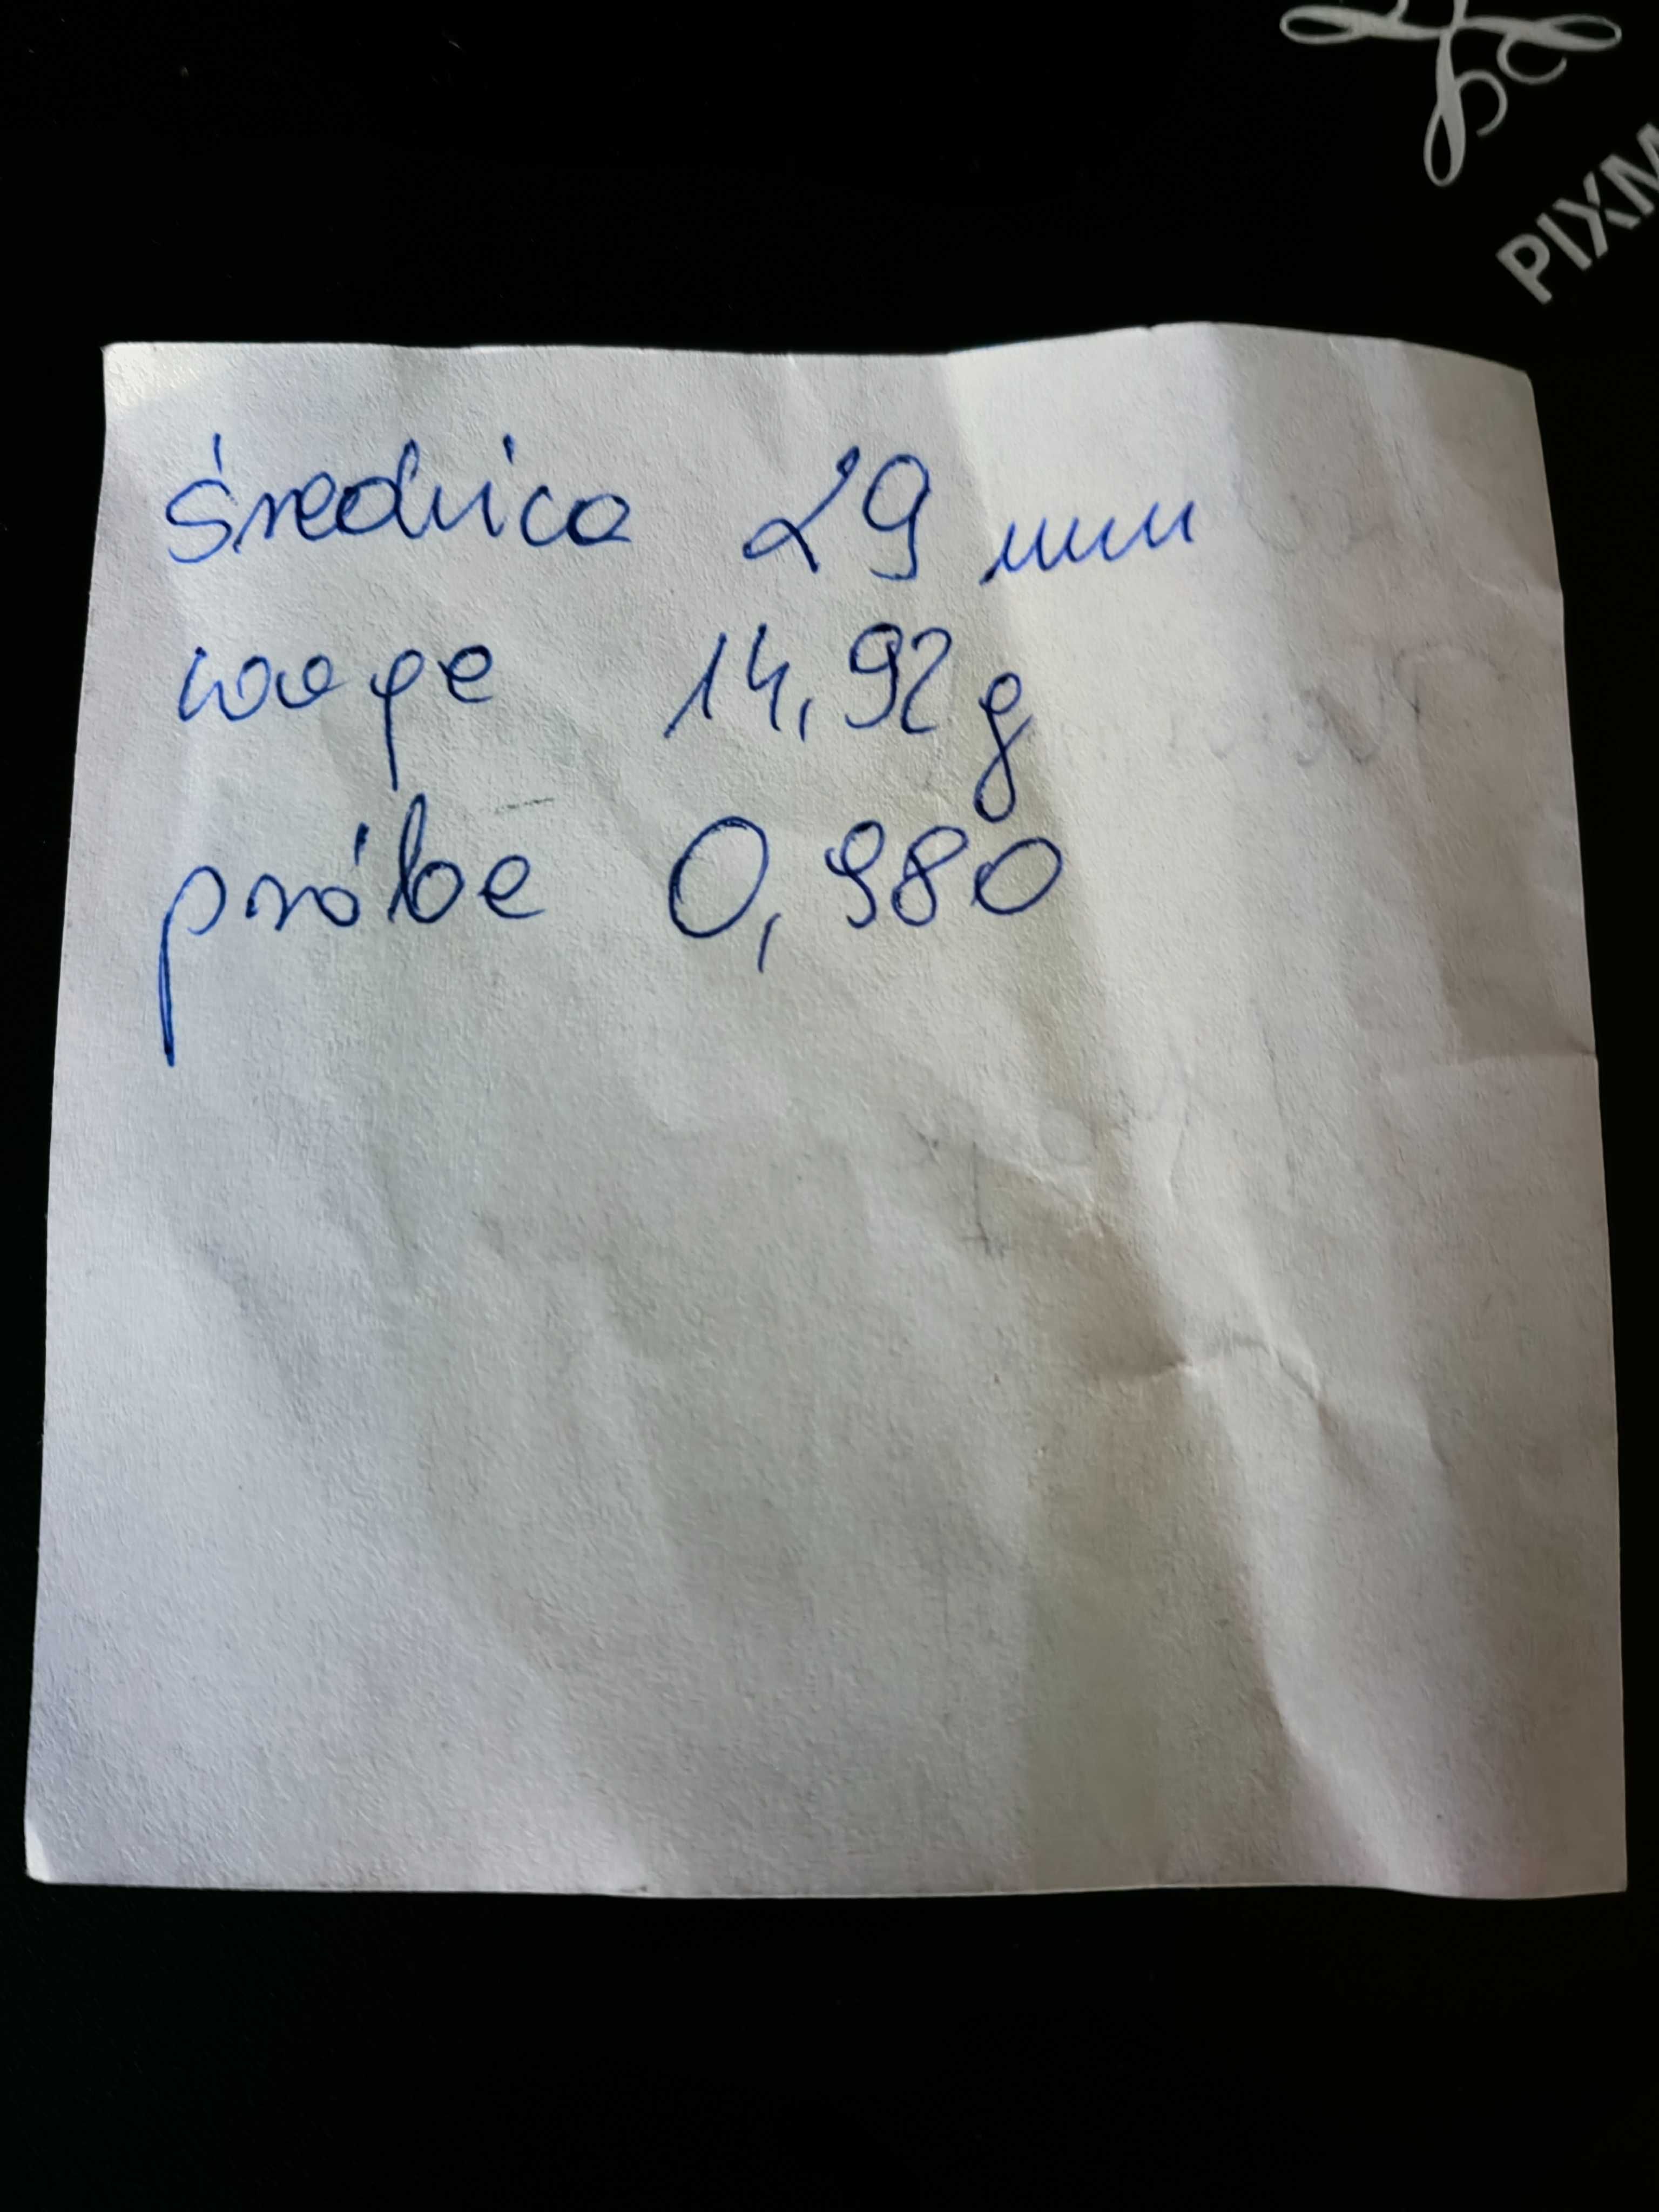 PIXM
średnica 29 mm
waga 14,92 g
próba 0,980